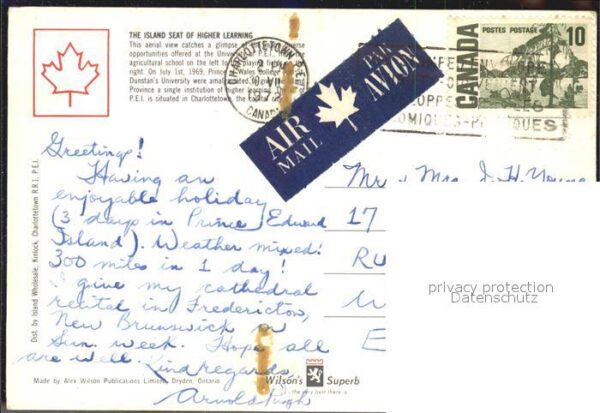 THE ISLAND SEAT OF HIGHER LEARNING
This aerial view catches a glimpse of
opportunities offered at the University
agricultural school on the left to
right. On July 1st, 1969, Prince Wales College
Dunstan's University were amal
Province a single institution of higher
P.E.I. is situated in Charlottetown, the capital
CHARLOTTETOWN
CANADA
AIR MAIL
PAR AVION
POSTES POSTAGE
CANADA
10
Greetings!
Having an
enjoyable holiday
(3 days in Prince Edward
Island). Weather mixed!
300 miles in 1 day!
I give my cathedral
recital in Fredericton,
New Brunswick on
Sun. week. Hope all
are well. Kind regards
Arnold Pugh
Mr & Mrs J. H. Young
17
RU
E
privacy protection
Datenschutz
Dist. by Island Wholesale, Kinlock, Charlottetown R.R.1. P.E.I.
Made by Alex Wilson Publications Limited, Dryden, Ontario
Wilson's Superb
the very best there is